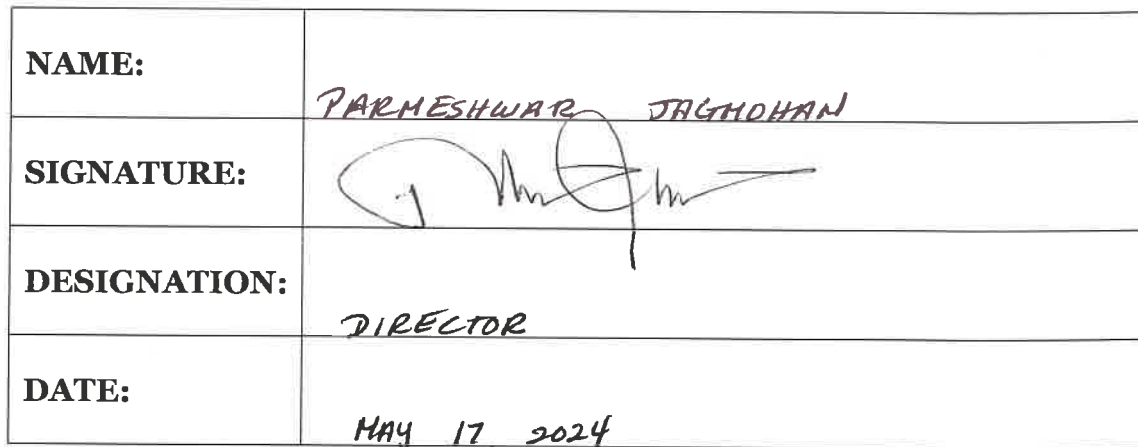 NAME:
PARMESHWAR JAGMOHAN
SIGNATURE:
DESIGNATION:
DIRECTOR
DATE:
MAY 17 2024